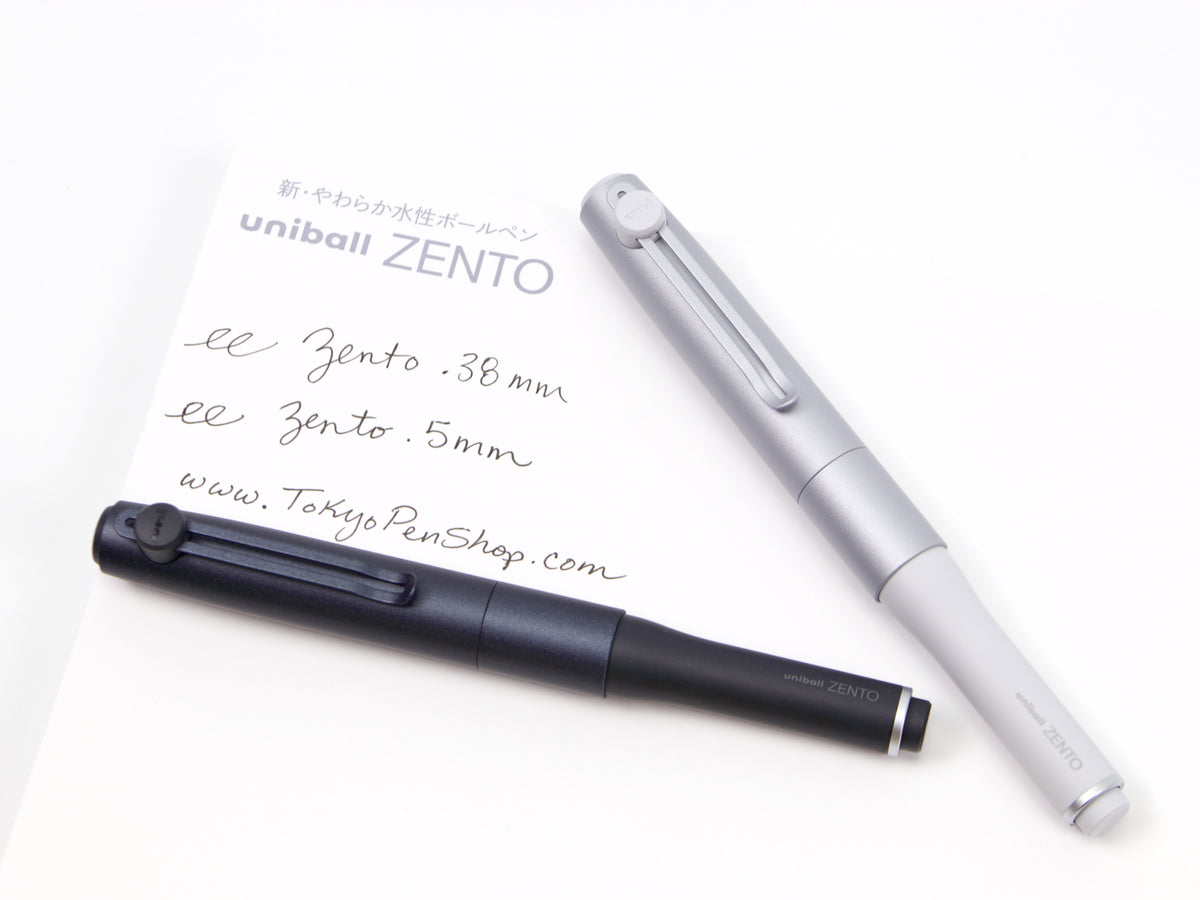 新・やわらか水性ボールペン
uniball ZENTO
ee Zento .38 mm
ee Zento .5mm
www.TokyoPenShop.com
uni
uniball ZENTO
uni
uniball ZENTO